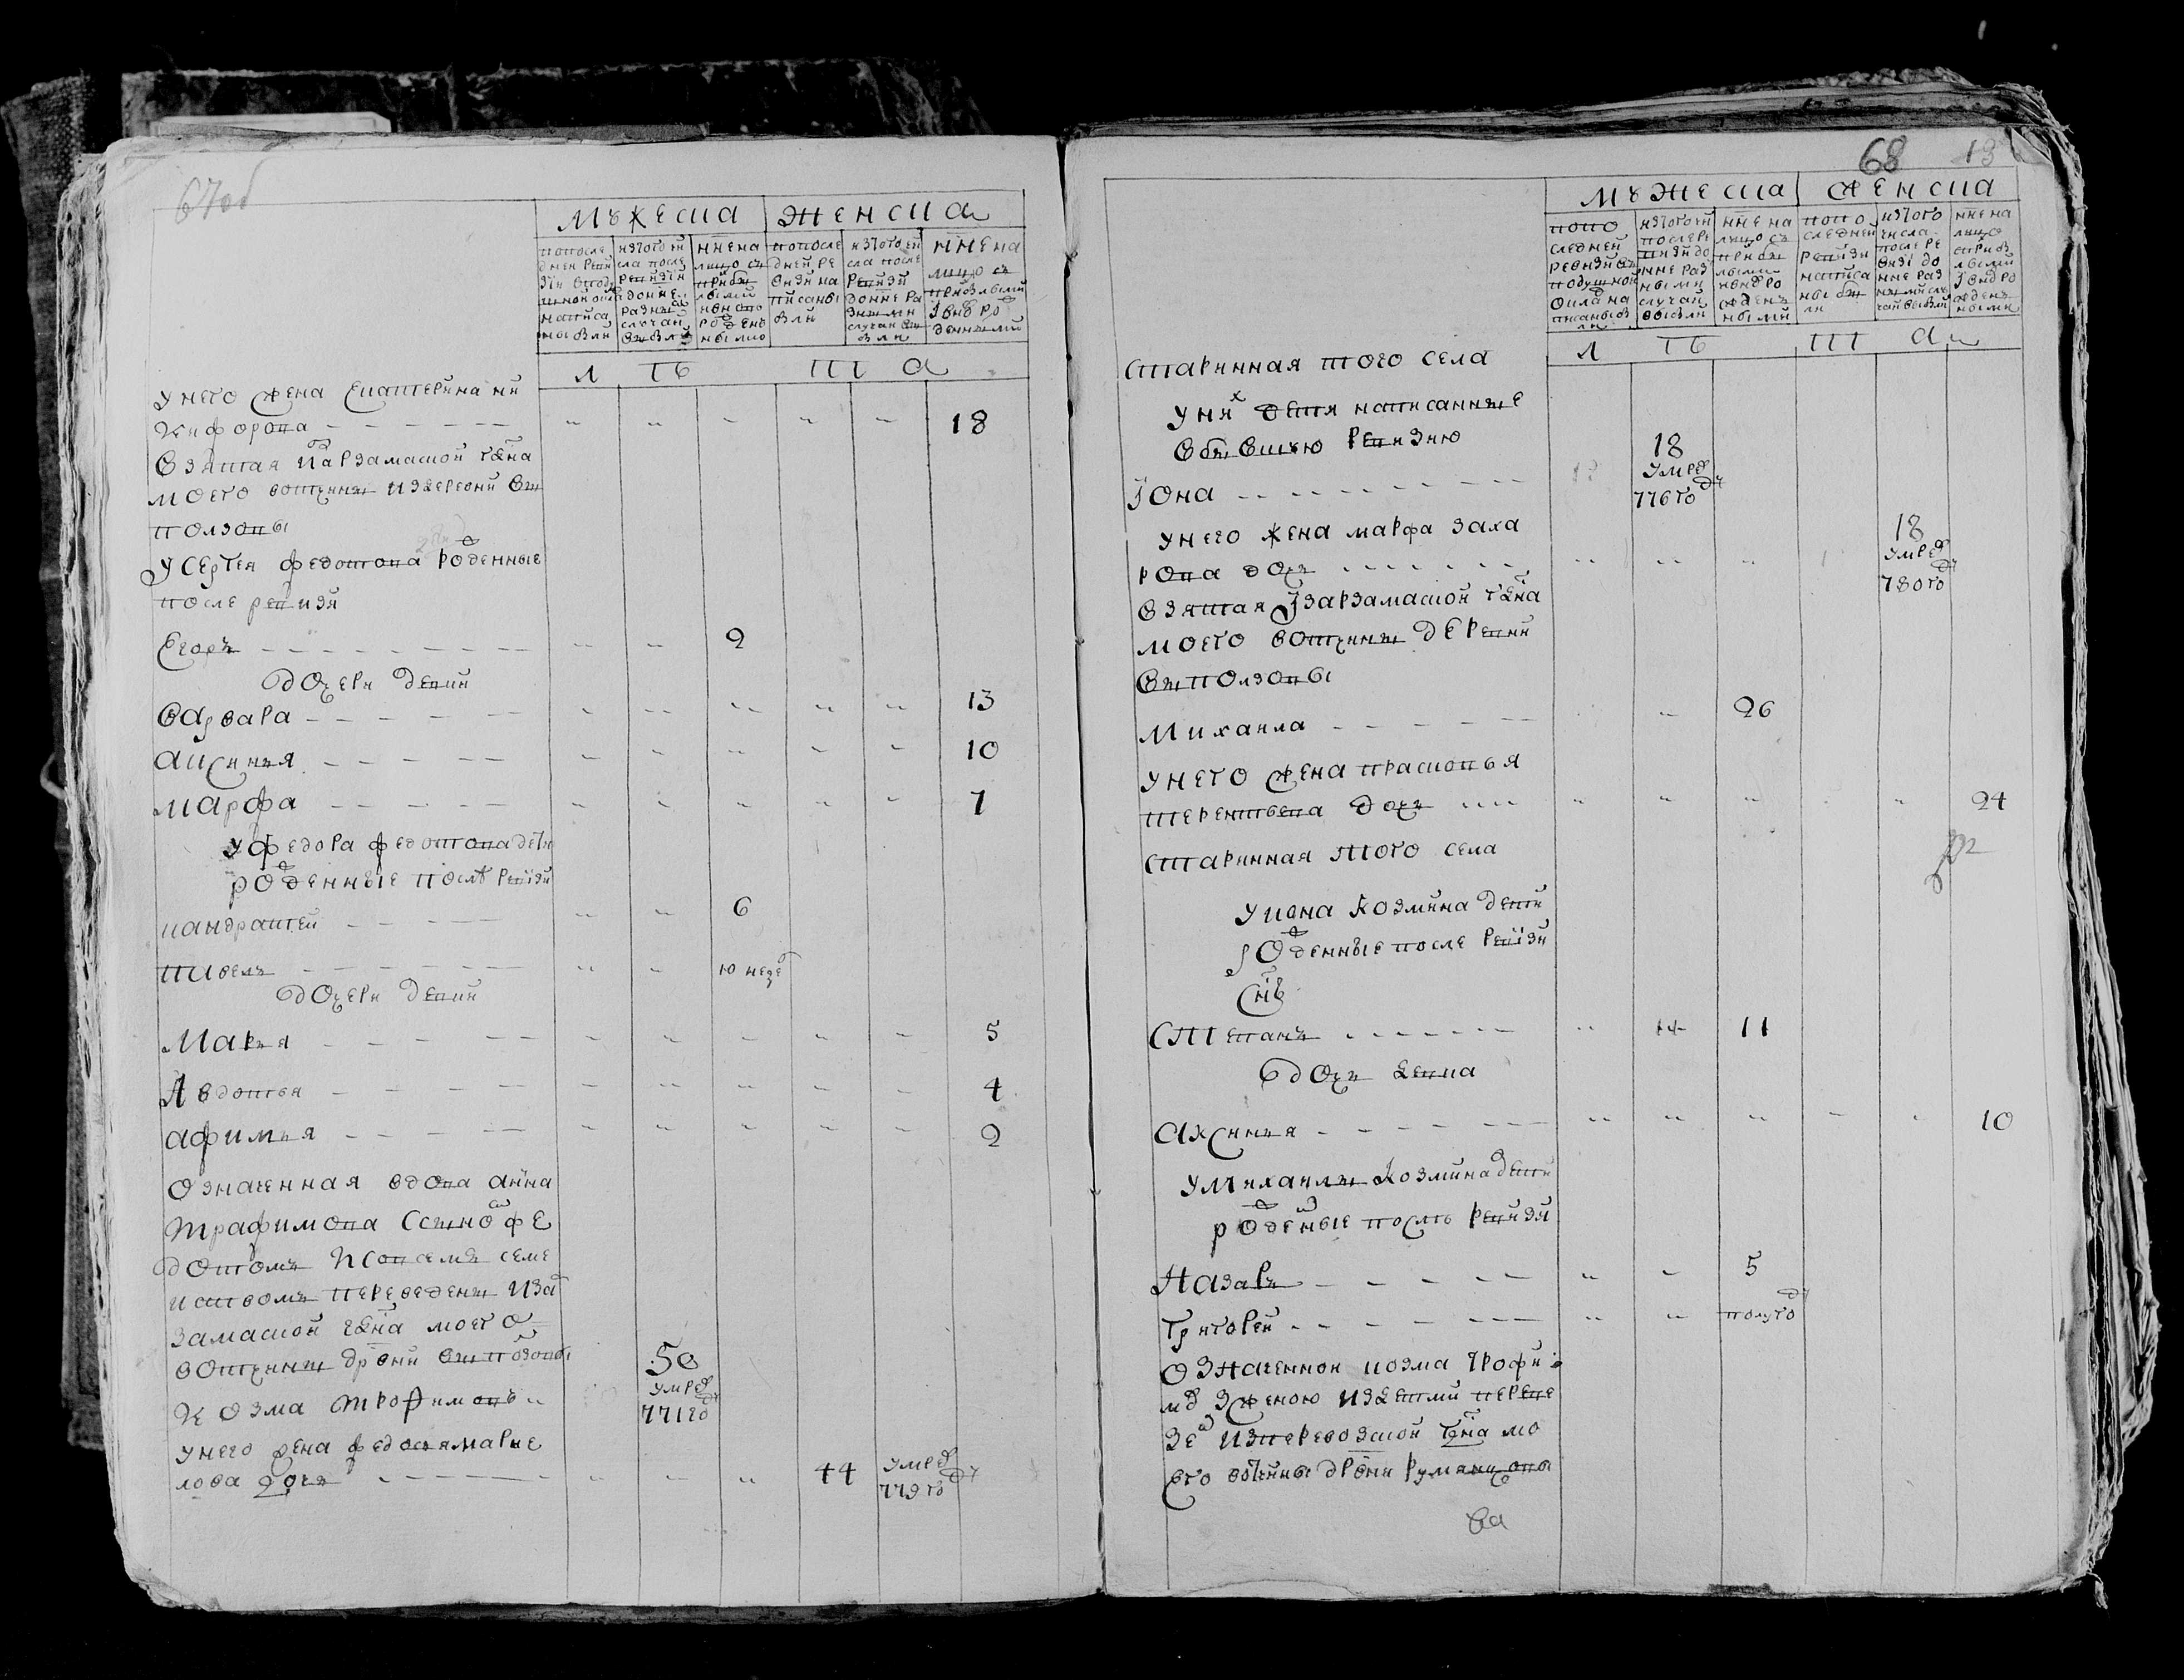 67об
мужеска женска
попосле
дней реви
зіи вподу
шной окла
написа
ны были
изтого чи
сла после
ревизіи
донне
разны
случай
выбыло
ныне на
лицо съ
прибы
лыми
ивновь
рожден
ными
попосле
дней ре
визи на
писаны
были
изтого чи
сла после
ревизи
донне ра
зными
случаи вы
были
ныне на
лицо съ
прибылыми
івно ро
жденными
л ть ш а
унего жена Екатерина ни
кифорова 18
взятая изарзамаской чена
моего вотчины издеревни вы
ползовы
усергея федотова рожденные
после ревизи
Егоръ 2
дочери девки
варвара 13
аксинья 10
марфа 7
уфедора федотова дети
рожденные после ревізи
кандратей 6
павелъ 10 неде
дочери девки
Марья 5
Авдотья 4
афимья 2
означенная вдова анна
трафимова ссыно фе
дотомъ исовсемъ семе
иствомъ переведены изар
замаской чена моего
вотчины дрвни выползовы
козма трофимовъ 50
умре
771го
унего жена федосья марке
лова дочь 44 умре
779го
68 13
мужеска женска
попо
следней
ревизи въ
подушной
окла на
писаны бы
ли
изтого чи
после ре
визи до
нне раз
ными
случаи
выбыли
нне на
лицо съ
прибы
лыми
ивновро
жден
ными
попо
следней
ревизи
написа
ны бы
ли
изтого
числа
после ре
визі до
нне раз
ными слу
чаи выбыли
нне на
лицо
сприбы
лыми
івновро
жден
ными
л ть ш а
старинная того села
уних дети написанные
вбывшую ревизию
іона 18
умре
776го
унего жена марфа заха
рова дочь 18
умре
780го
взятая ізарзамаской чена
моего вотчины деревни
выползовы
Михаила 26
унего жена прасковья
терентьева дочь 24
старинная того села
укозмина дети
рожденные после ревізи
снъ
степанъ 11
дочь девка
аксинья 10
умихаилы козмина дети
рожденые после ревизи
Назаръ 5
григорей полуго
означенной козма трофи
мо зженою издетми переве
зе изперевозской чена мо
его вотчины дрвни румянцовы